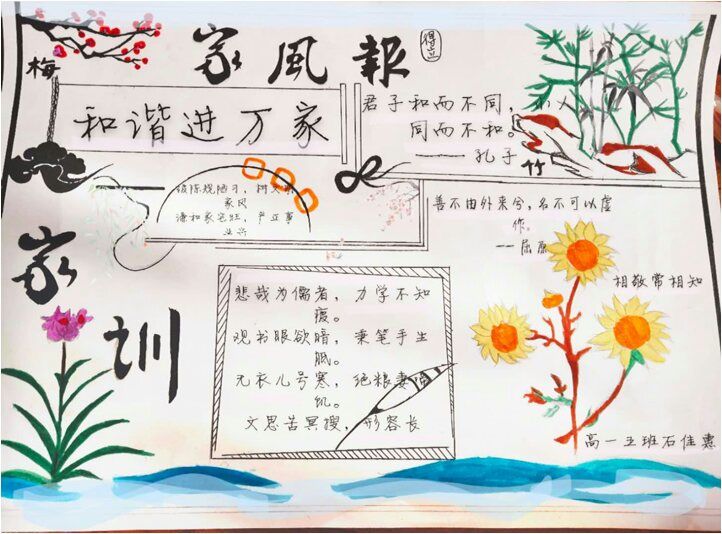 家風報
得立
梅
和谐进万家
君子和而不同，小人
同而不和。
——孔子
竹
破陈规陋习，树文明
家风
谦和家宅旺，严正事
业兴
善不由外来兮，名不可以虚
作。
--屈原
家训
相敬常相知
悲哉为儒者，力学不知
疲。
观书眼欲暗，秉笔手生
胝。
无衣儿号寒，绝粮妻
饥。
文思苦冥搜，形容长
高一五班石佳惠